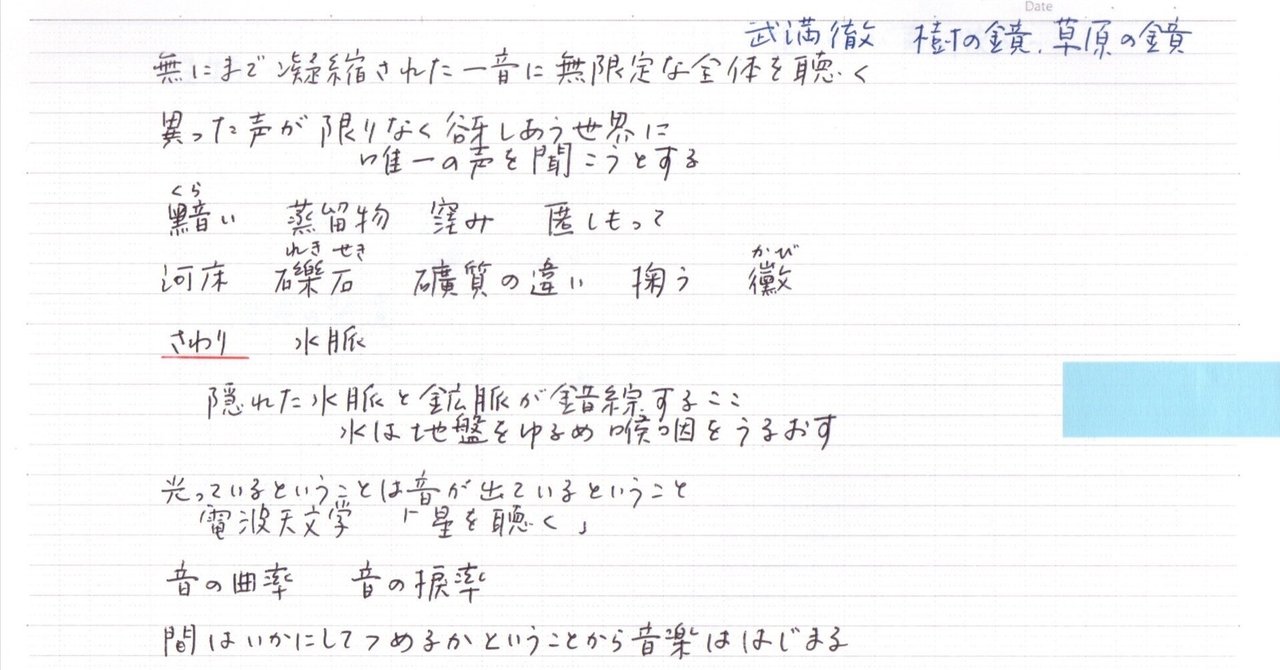 Date
武満徹 樹の鏡、草原の鏡
無にまで凝縮された一音に無限定な全体を聴く
異った声が限りなく谺しあう世界に
唯一の声を聞こうとする
くら
黯い 蒸留物 窪み 匿しもって
れき せき かび
河床 礫石 礦質の違い 掬う 黴
さわり 水脈
隠れた水脈と鉱脈が錯綜するここ
水は地盤をゆるめ喉咽をうるおす
光っているということは音が出ているということ
電波天文学 「星を聴く」
音の曲率 音の捩率
間はいかにしてつめるかということから音楽ははじまる